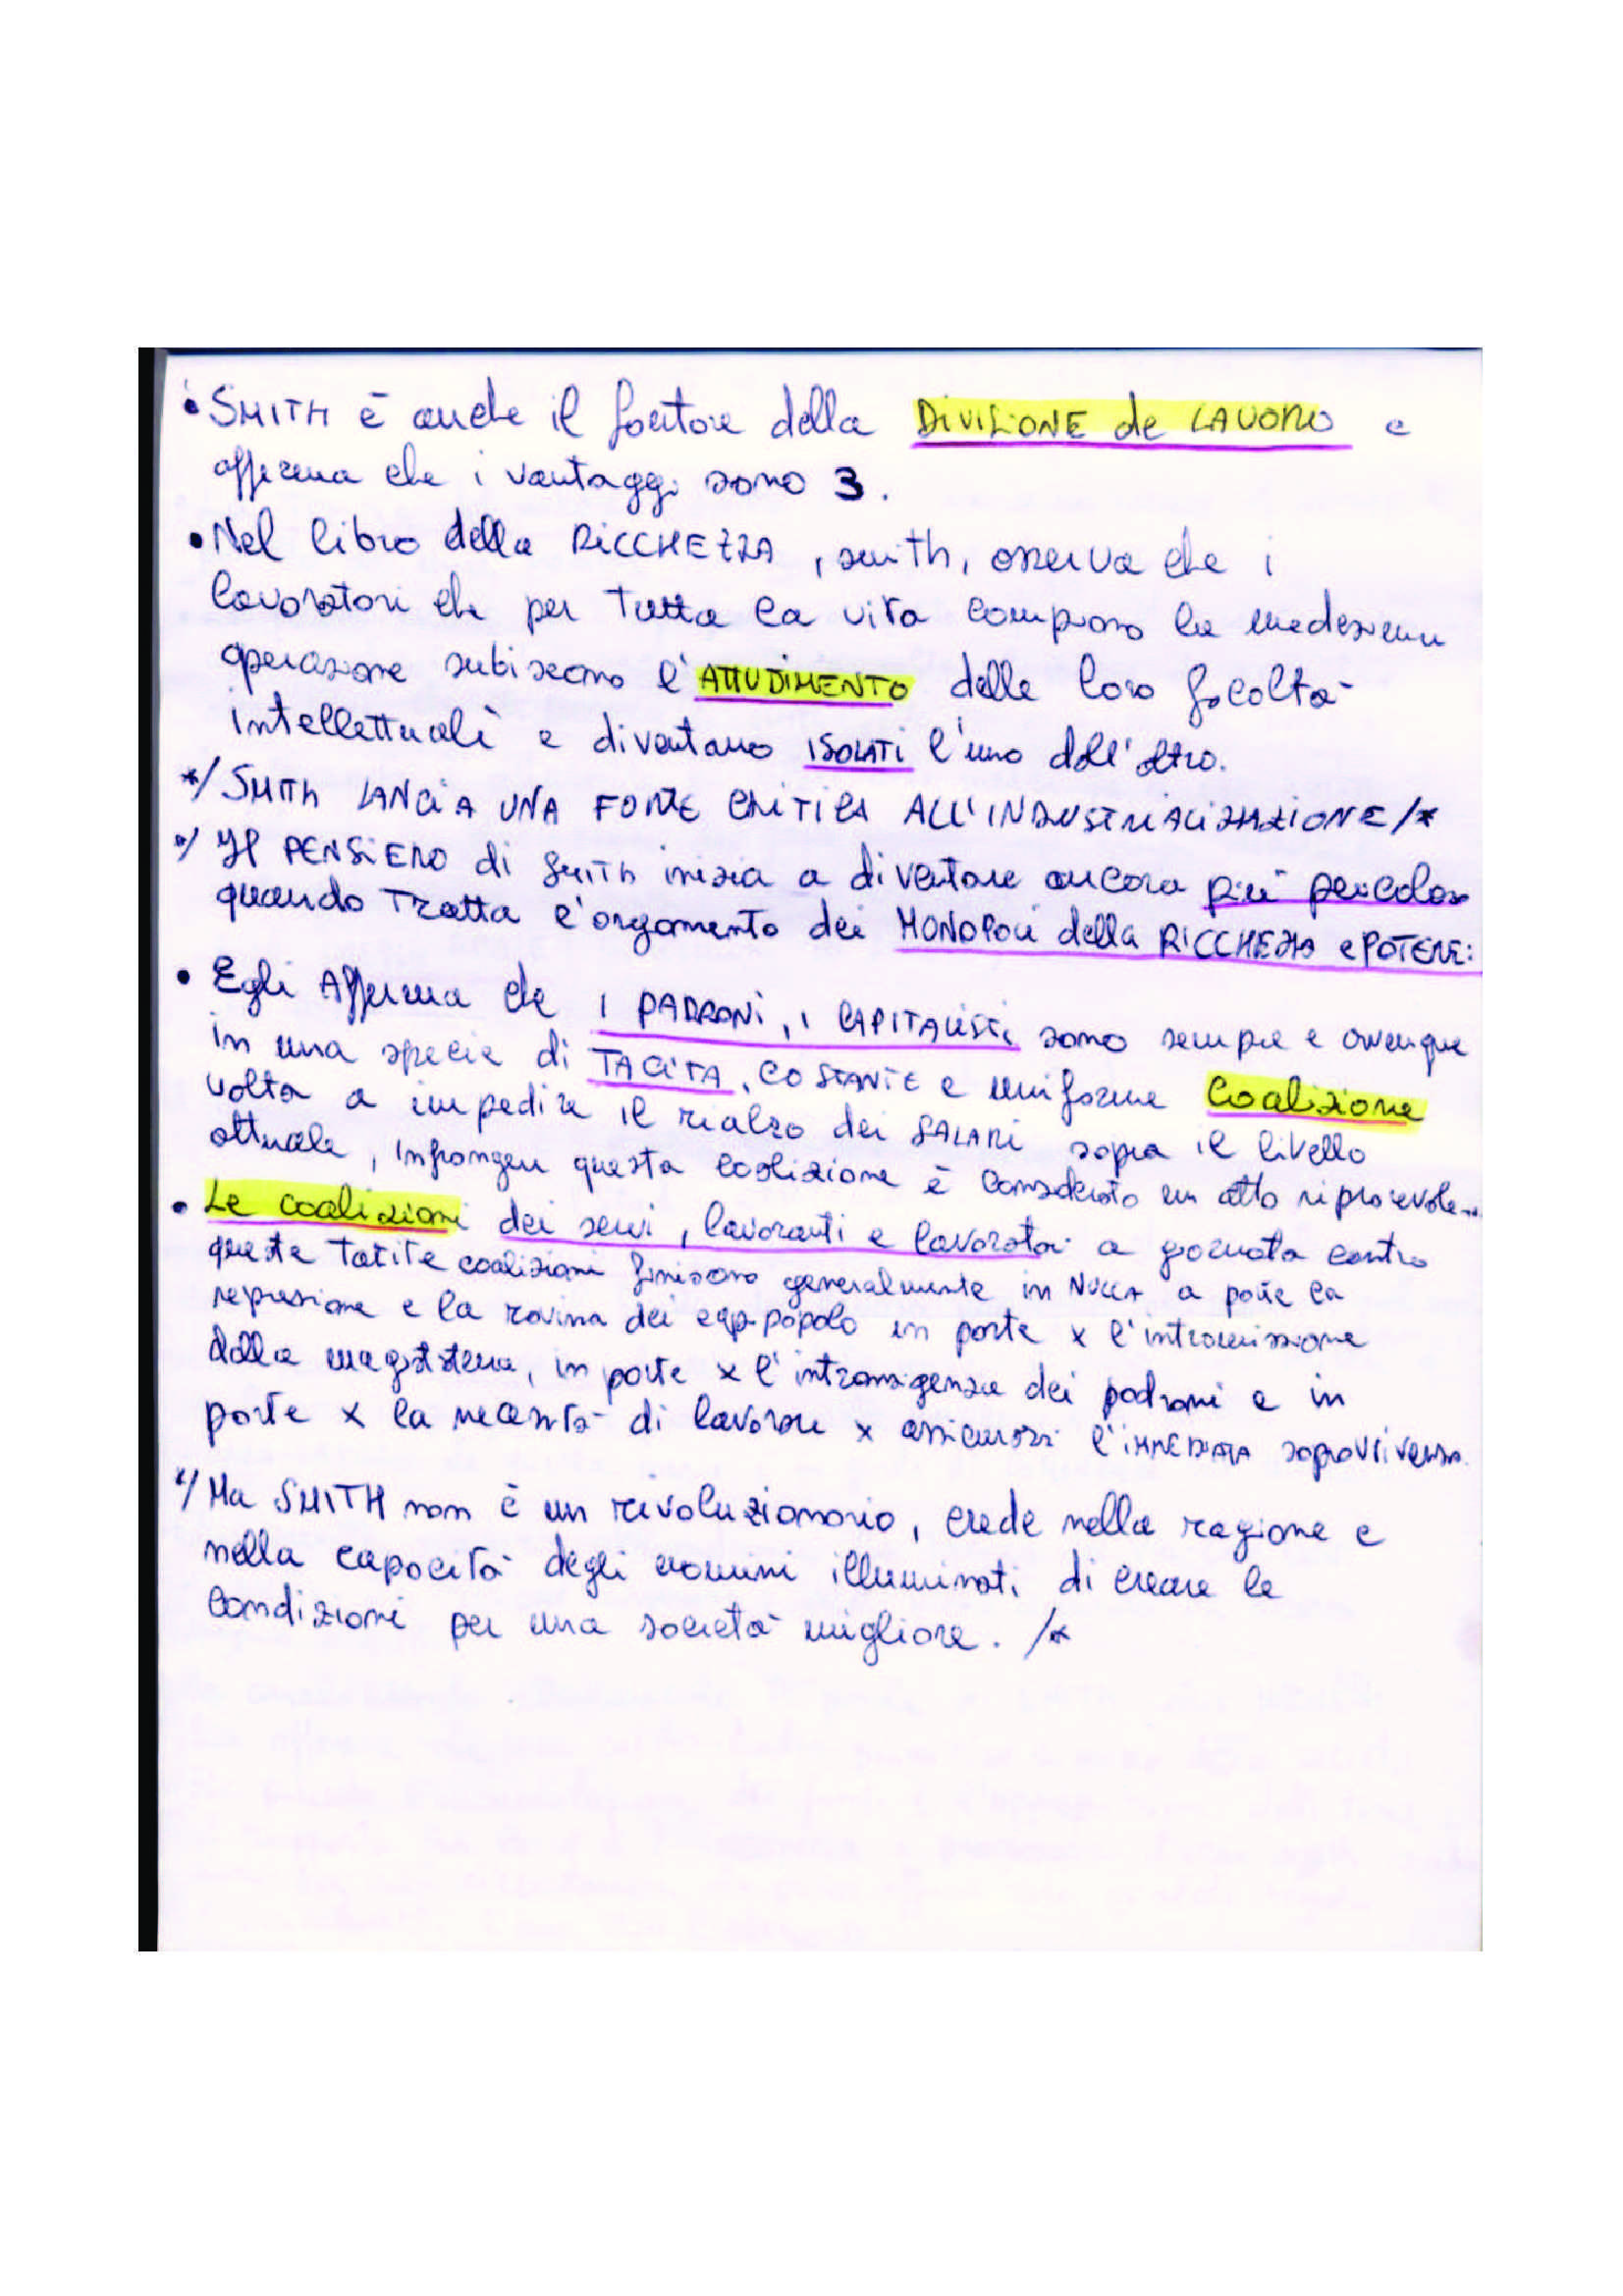 • SMITH è anche il fautore della DIVISIONE de LAVORO e
afferma che i vantaggi sono 3.
• Nel libro della RICCHEZZA, smith, osserva che i
lavoratori che per Tutta la vita compiono la medesima
operazione subiscono l'ATTUDIMENTO delle loro facoltà
intellettuali e diventano ISOLATI l'uno dall'altro.
*/ SMITH LANCIA UNA FORTE CRITICA ALL'INDUSTRIALIZZAZIONE /*
*/ Il PENSIERO di Smith inizia a diventare ancora più pericoloso
quando Tratta l'argomento dei MONOPOLI della RICCHEZZA e POTERE:
• Egli Afferma che I PADRONI, i CAPITALISTI sono sempre e ovunque
in una specie di TACITA, COSTANTE e uniforme Coalizione
volta a impedire il rialzo dei SALARI sopra il livello
attuale, infrangere questa coalizione è considerato un atto riprovevole...
• Le coalizioni dei servi, lavoranti e lavoratori a giornata contro
queste tacite coalizioni finiscono generalmente in NULLA a parte la
repressione e la rovina dei cap-popolo in parte x l'intromissione
della, in parte x l'intransigenza dei padroni e in
parte x la necessità di lavorare x assicurarsi l'IMMEDIATA sopravvivenza.
*/ Ma SMITH non è un rivoluzionario, crede nella ragione e
nella capacità degli uomini illuminati di creare le
condizioni per una società migliore. /*